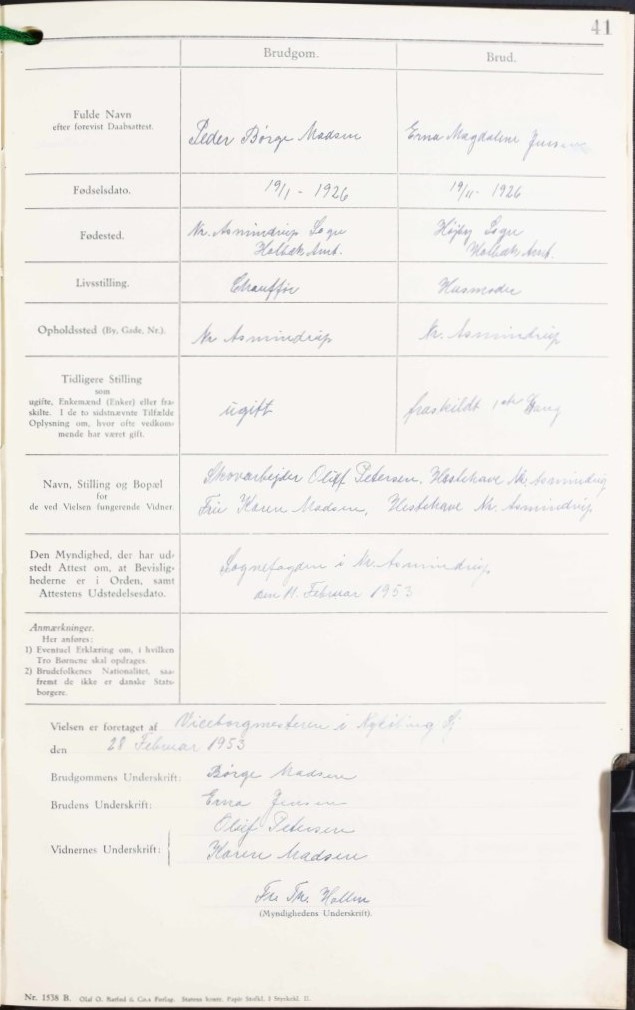 41
Brudgom. Brud.
Fulde Navn
efter forevist Daabsattest.
Peder Børge Madsen Erna Magdalene Jensen
Fødselsdato. 19/1 - 1926 19/11 - 1926
Fødested. Nr. Asmindrup Sogn Højby Sogn
Holbæk Amt. Holbæk Amt.
Livsstilling. Chauffør Husmoder
Opholdssted (By, Gade, Nr.). Nr Asmindrup Nr. Asmindrup
Tidligere Stilling
som
ugifte, Enkemænd (Enker) eller fra-
skilte. I de to sidstnævnte Tilfælde
Oplysning om, hvor ofte vedkom-
mende har været gift.
ugift fraskildt 1ste Gang
Navn, Stilling og Bopæl
for
de ved Vielsen fungerende Vidner.
Skovarbejder Oluf Petersen, Hestehave Nr. Asmindrup
Fru Karen Madsen, Hestehave Nr. Asmindrup
Den Myndighed, der har ud-
stedt Attest om, at Bevislig-
hederne er i Orden, samt
Attestens Udstedelsesdato.
Sognefogden i Nr Asmindrup
den 11. Februar 1953
Anmærkninger.
Her anføres:
1) Eventuel Erklæring om, i hvilken
Tro Børnene skal opdrages.
2) Brudefolkenes Nationalitet, saa-
fremt de ikke er danske Stats-
borgere.
Vielsen er foretaget af Viceborgmesteren i Nykøbing Sj
den 28 Februar 1953
Brudgommens Underskrift: Børge Madsen
Brudens Underskrift: Erna Jensen
Oluf Petersen
Vidnernes Underskrift: Karen Madsen
(Myndighedens Underskrift).
Nr. 1538 B. Olaf O. Barfod & Co.s Forlag.